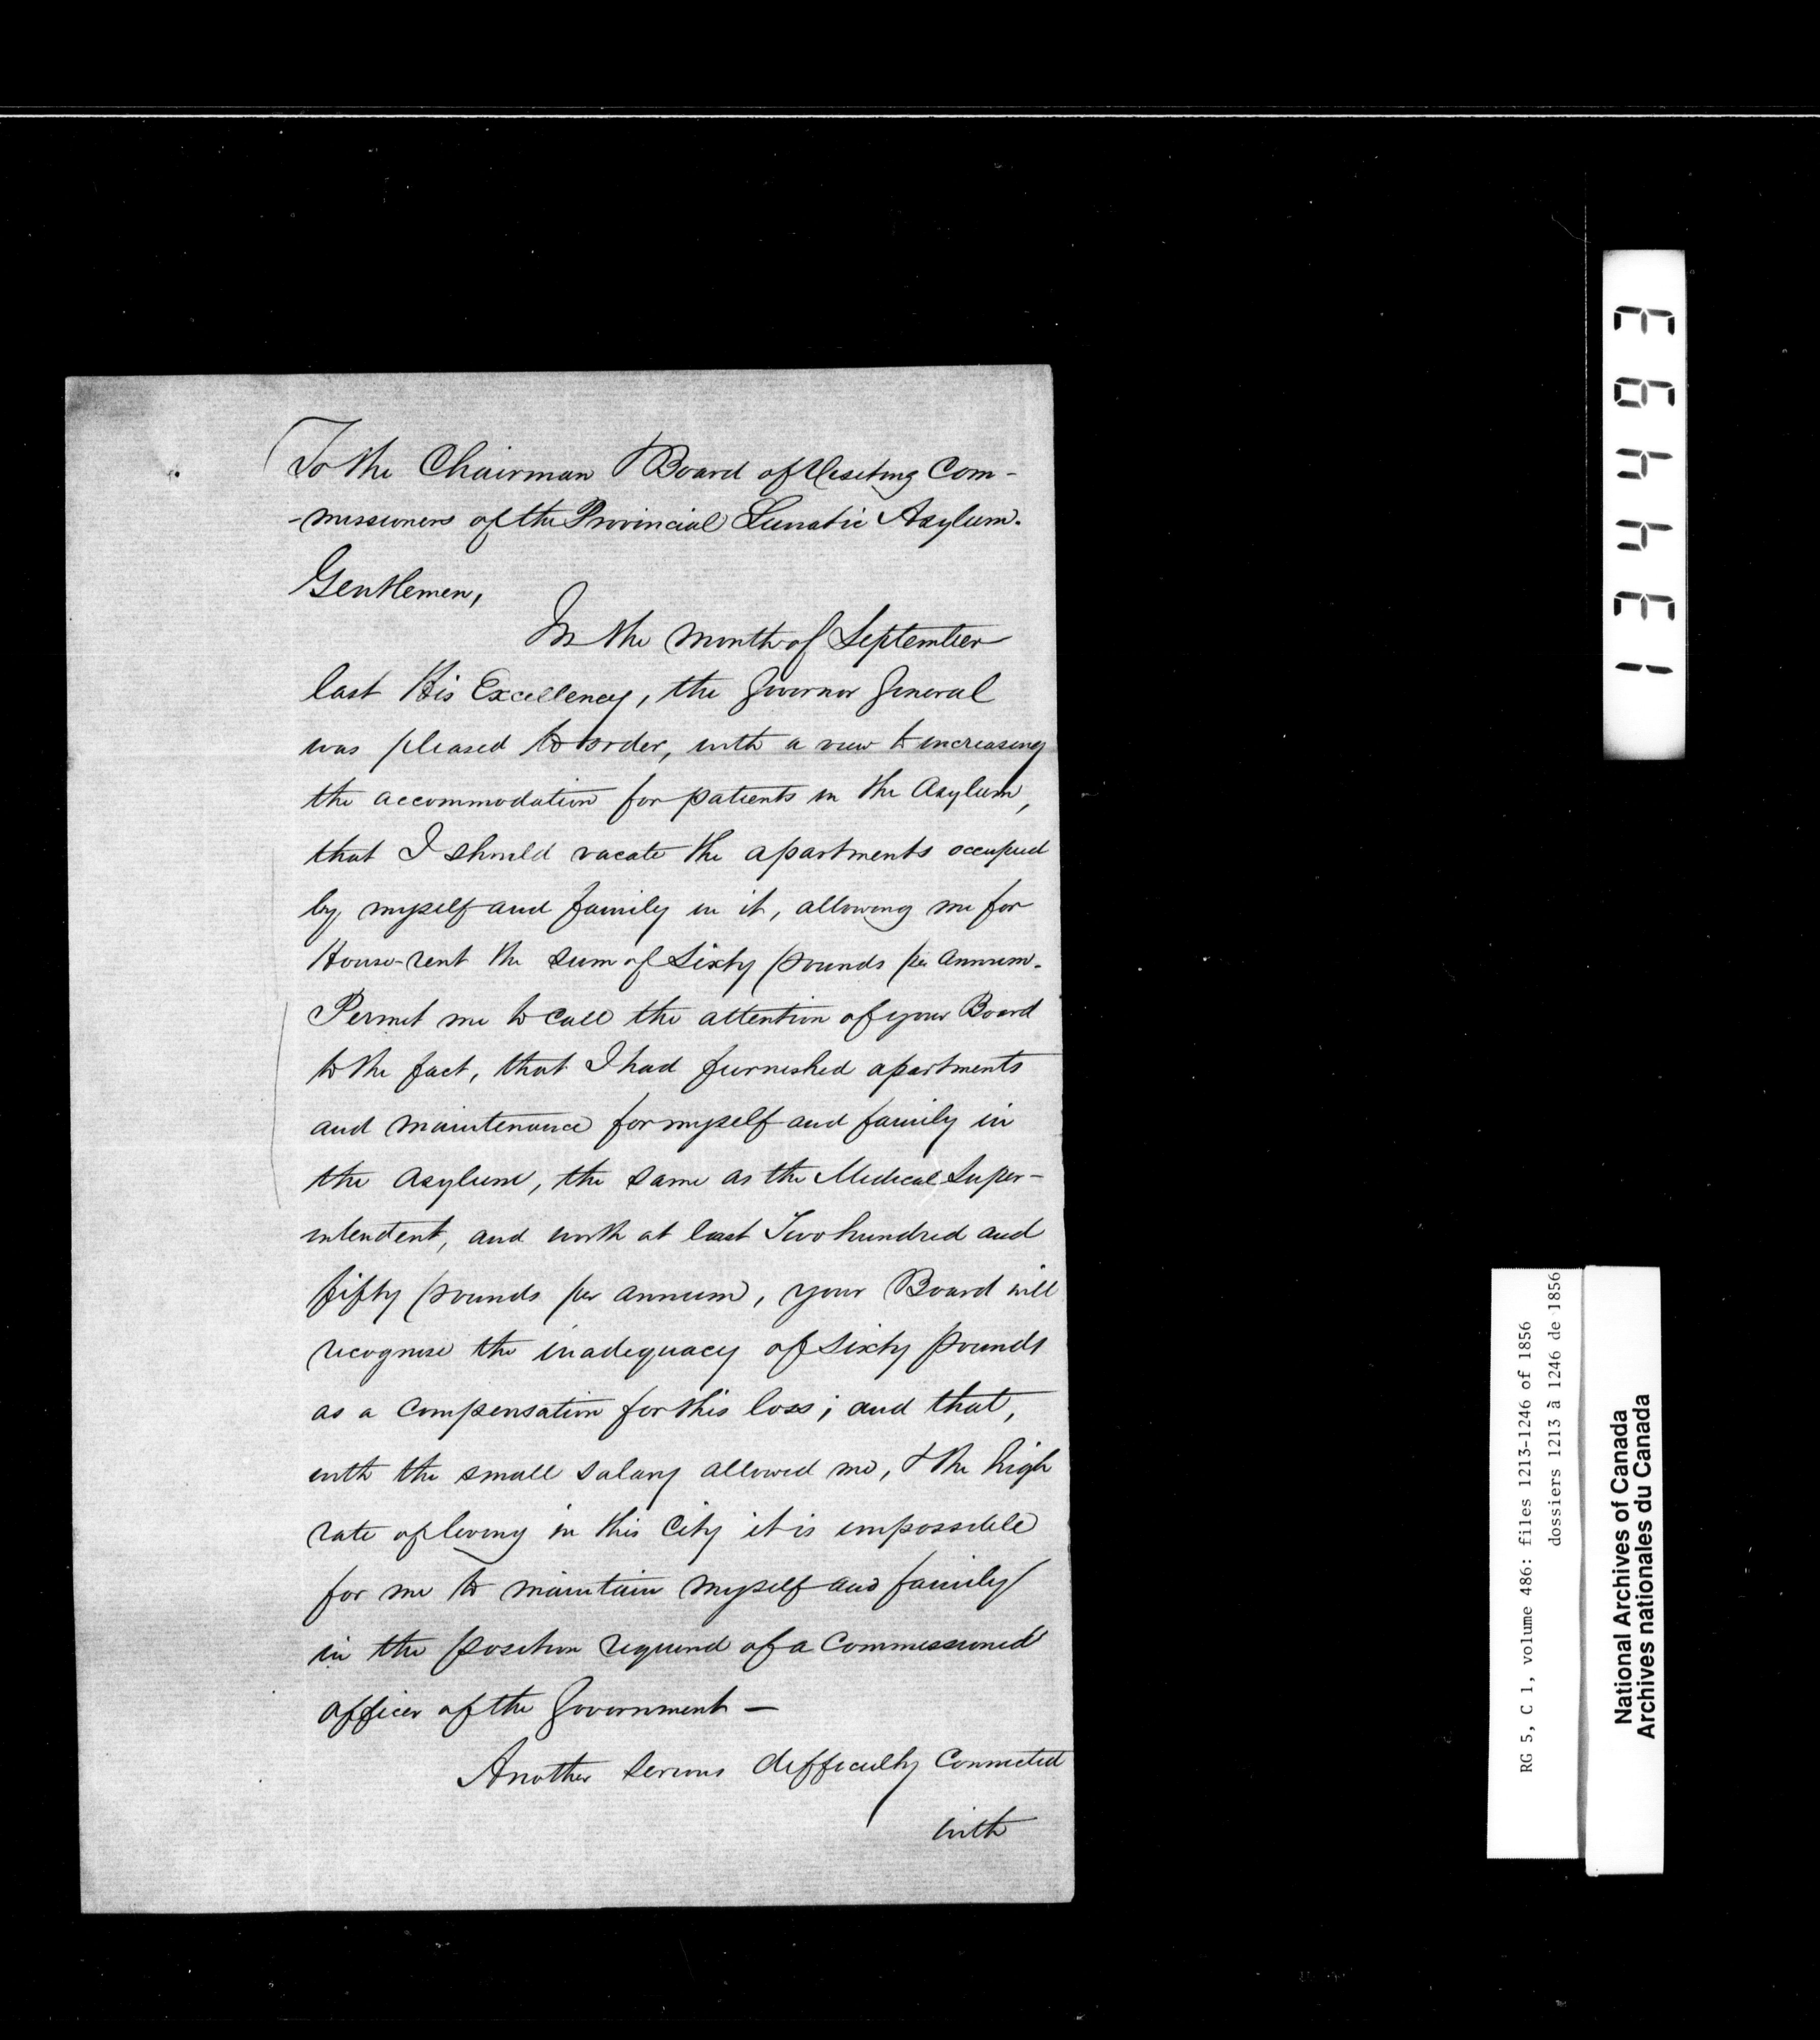 To the Chairman & Board of Visiting Com-
-missioners of the Provincial Lunatic Asylum.
Gentlemen,
In the month of September
last His Excellency, the Governor General
was pleased to order, with a view to increasing
the accommodation for patients in the Asylum,
that I should vacate the apartments occupied
by myself and family in it, allowing me for
House-rent the sum of Sixty pounds per annum.
Permit me to call the attention of your Board
to the fact, that I had furnished apartments
and maintenance for myself and family in
the Asylum, the same as the Medical Super-
intendent, and worth at least Two hundred and
fifty pounds per annum, your Board will
recognise the inadequacy of sixty pounds
as a compensation for this loss; and that,
with the small salary allowed me, & the high
rate of living in this City it is impossible
for me to maintain myself and family
in the position required of a Commissioned
officer of the Government —
Another serious difficulty connected
with
134493
RG 5, C 1, volume 486: files 1213-1246 of 1856
dossiers 1213 à 1246 de 1856
National Archives of Canada
Archives nationales du Canada